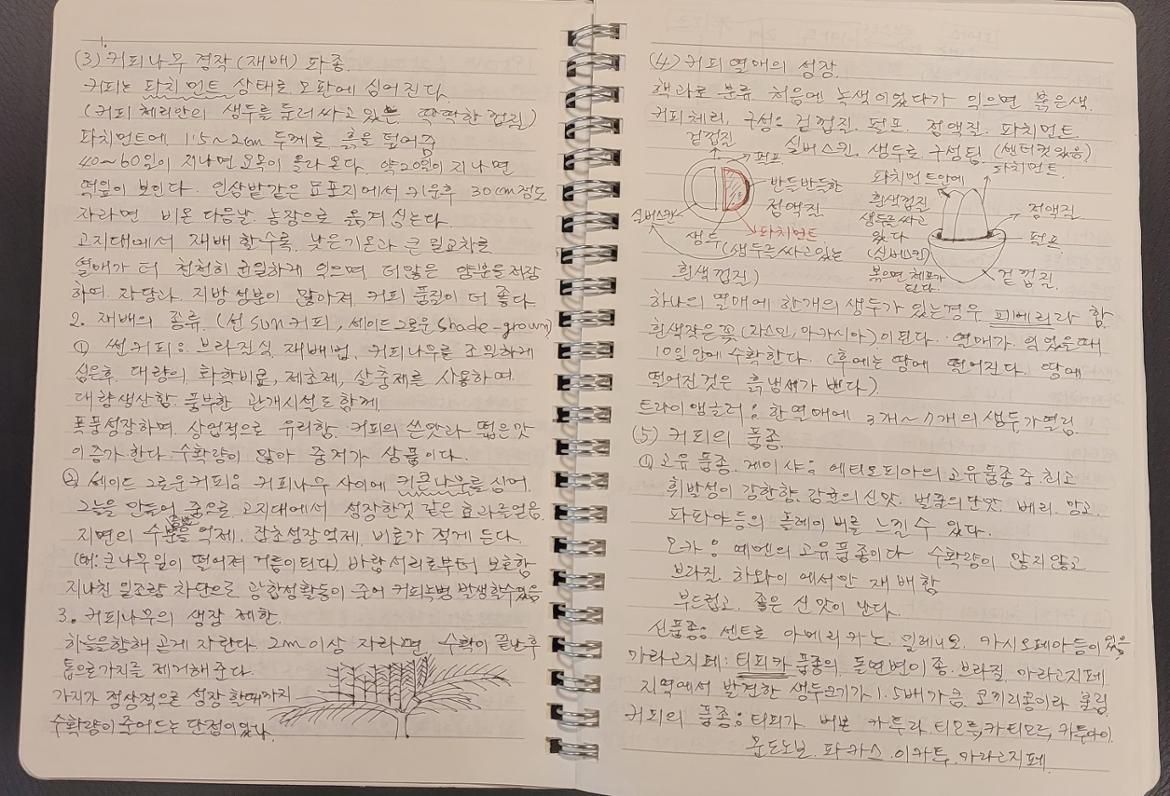 (3) 커피나무 경작(재배) 파종.
커피는 파치먼트 상태로 모판에 심어진다.
(커피 체리안의 생두를 둘러싸고 있는 딱딱한 껍질)
파치먼트에 1.5~2cm 두께로 흙은 덮어줌
40~60일이 지나면 묘목이 올라온다. 약20일이 지나면
떡잎이 보인다. 인삼밭같은 묘포지에서 키운후 30cm정도
자라면 비온 다음날. 농장으로 옮겨 심는다.
고지대에서 재배 할수록 낮은기온과 큰 일교차로
열매가 더 천천히 균일하게 익으며 더많은 양분을 저장
하여. 자당과. 지방성분이 많아져 커피 품질이 더 좋다.
2. 재배의 종류. (선 sun커피, 셰이드그로운 shade-grown)
① 썬커피: 브라질식 재배법. 커피나무를 조밀하게
심은후. 대량의 화학비료, 제초제, 살충제를 사용하여.
대량생산함. 풍부한 관개시설도 함께.
폭풍성장하며. 상업적으로 유리함. 커피의 쓴맛과 떫은맛
이 증가한다. 수확량이 많아 중저가 상품이다.
② 셰이드 그로운커피: 커피나무 사이에 키큰나무를 심어.
그늘을 만들어 줌으로 고지대에서 성장한것 같은 효과를얻음.
지면의 수분증발 억제. 잡초성장억제. 비료가 적게 든다.
(예: 큰나무잎이 떨어져 거름이된다) 바람 서리로부터 보호함
지나친 일조량 차단으로 광합성활동이 줄어 커피녹병 발생할수있음
3. 커피나무의 생장 제한.
하늘을향해 곧게 자란다. 2m이상 자라면 수확이 끝난후
톱으로가지를 제거해준다.
가지가 정상적으로 성장 할때까지
수확량이 줄어드는 단점이있다.
(4) 커피 열매의 성장.
핵과로 분류 처음엔 녹색이었다가 익으면 붉은색.
커피체리, 구성: 겉껍질. 펄프. 점액질. 파치먼트.
실버스킨. 생두로 구성됨. (센터컷있음)
겉껍질
펄프
반득반득한
점액질
파치먼트
실버스킨
생두
(생두를 싸고있는
흰색껍질)
파치먼트안에
흰색껍질
생두를싸고
있다
(실버스킨)
볶으면 체프가
된다.
파치먼트.
점액질
펄프
겉껍질.
하나의 열매에 한개의 생두가 있는경우 피베리라 함.
흰색작은꽃(자스민, 아카시아)이 핀다. 열매가 익었을때
10일안에 수확한다. (후에는 땅에 떨어진다. 땅에
떨어진것은 흙냄새가 밴다.)
트라이앵글러: 한열매에 3개~7개의 생두가열림.
(5) 커피의 품종.
① 고유 품종. 게이샤: 에티오피아의 고유품종중 최고
휘발성이 강한향. 감귤의 신맛. 벌꿀의단맛. 베리. 망고.
파파야등의 플레이버를 느낄 수 있다.
모카: 예멘의 고유품종이다 수확량이 많지않고
브라질. 하와이 에서만 재배함
부드럽고. 좋은 신맛이 난다.
신품종: 센트로 아메리카노. 밀레니오. 카시오페아등이 있음
마라고지페: 티피카 품종의 돌연변이종. 브라질 마라고지페
지역에서 발견한 생두크기가 1.5배가큼 코끼리콩이라 불림
커피의 품종: 티피카 버본 카투라. 티모르, 카티모르, 카투아이.
문도노보. 파카스. 이카투. 마라고지페.